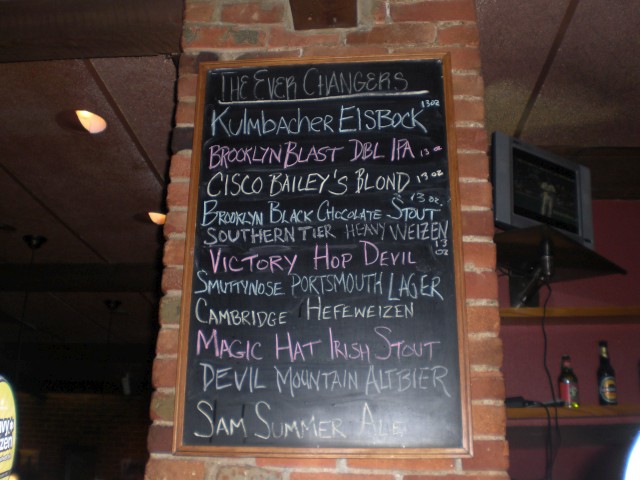 THE EVER CHANGERS
KULMBACHER EISBOCK 13 OZ
BROOKLYN BLAST DBL IPA 13 OZ
CISCO BAILEY'S BLOND 13 OZ
BROOKLYN BLACK CHOCOLATE STOUT 13 OZ.
SOUTHERN TIER HEAVY WEIZEN 13 OZ
VICTORY HOP DEVIL
SMUTTYNOSE PORTSMOUTH LAGER
CAMBRIDGE HEFEWEIZEN
MAGIC HAT IRISH STOUT
DEVIL MOUNTAIN ALTBIER
SAM SUMMER ALE